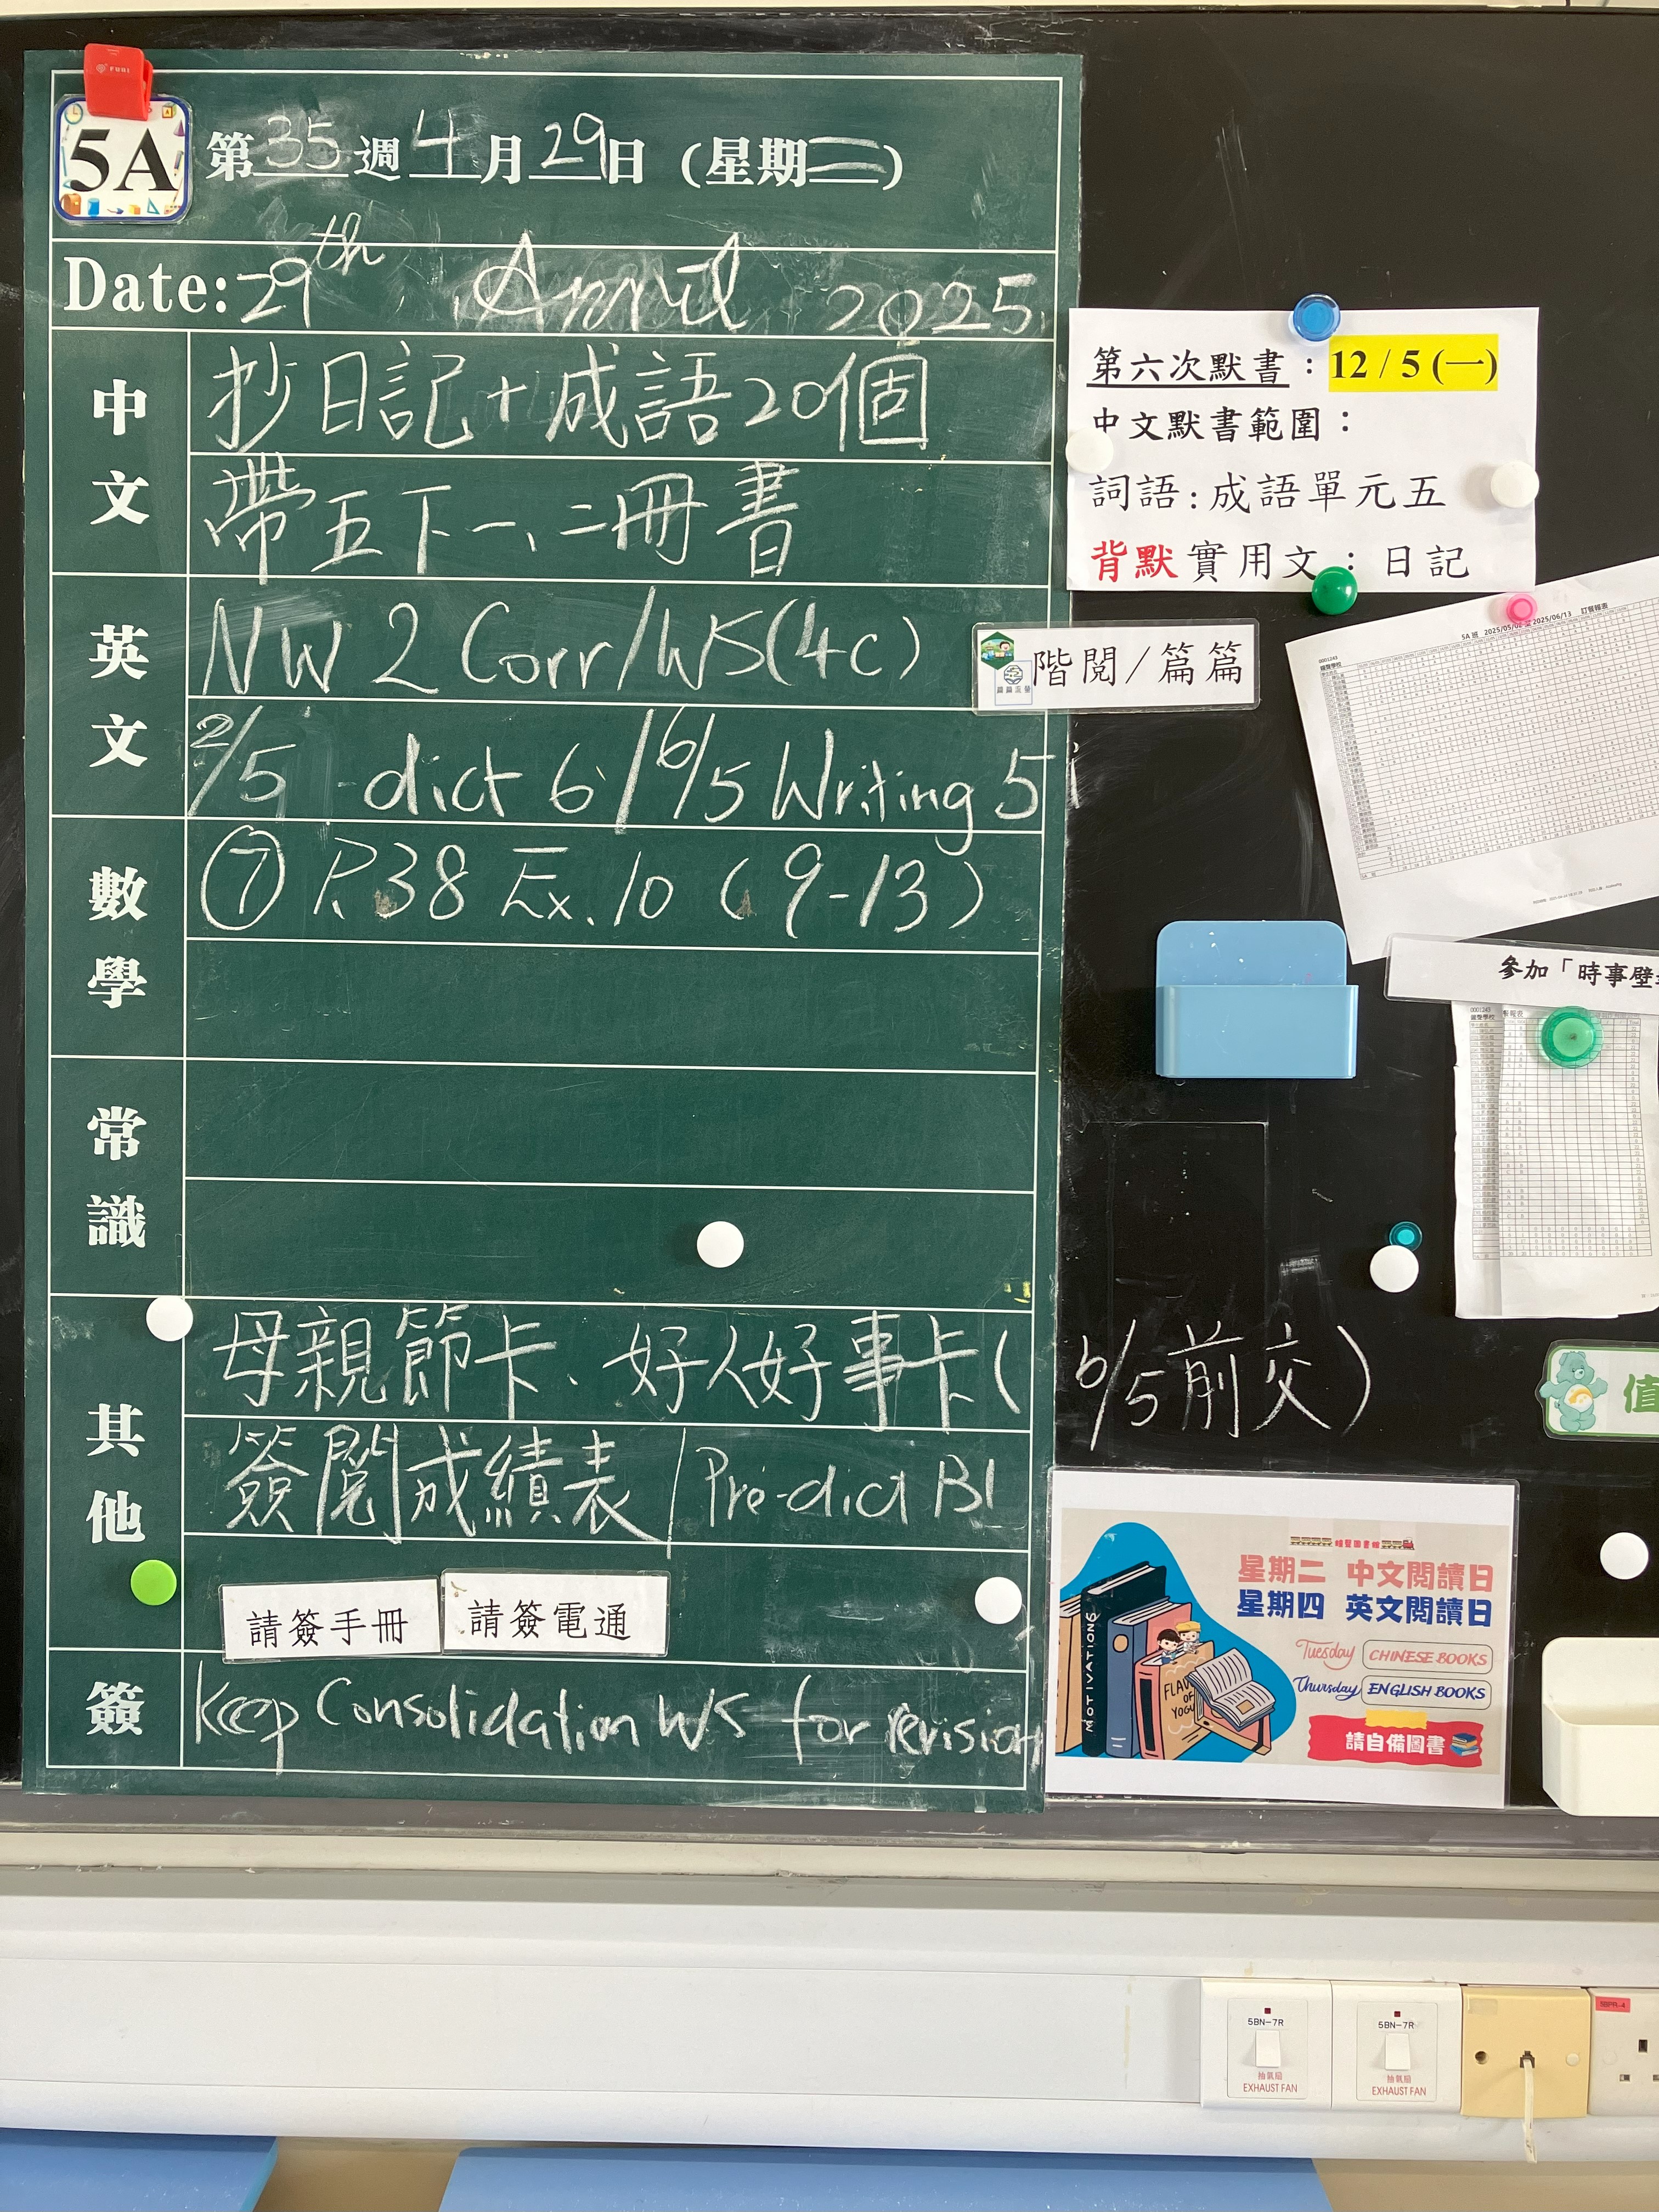 FUNI
5A
第35週4月29日（星期二）
Date: 29th April 2025
中文
抄日記+成語20個
帶五下一、二冊書
英文
NW 2 Corr/WS(4C)
階閱/篇篇
2/5 -dict 6 / 6/5 Writing 5
數學
⑦ P.38 Ex.10 (9-13)
常識
其他
母親節卡、好人好事卡(6/5前交)
簽閱成績表 / Pre-dict B1
請簽手冊
請簽電通
簽
Keep Consolidation WS for revision
第六次默書：12/5(一)
中文默書範圍：
詞語:成語單元五
背默實用文：日記
5A 班 2025/05/02 至 2025/06/13 訂餐報表
0001243
參加「時事壁
0001243
值
星期二 中文閱讀日
星期四 英文閱讀日
Tuesday CHINESE BOOKS
Thursday ENGLISH BOOKS
請自備圖書
MOTIVATIONS
FLAV
OF
YOGU
5BN-7R
抽氣扇
EXHAUST FAN
5BN-7R
抽氣扇
EXHAUST FAN
5BPR-4